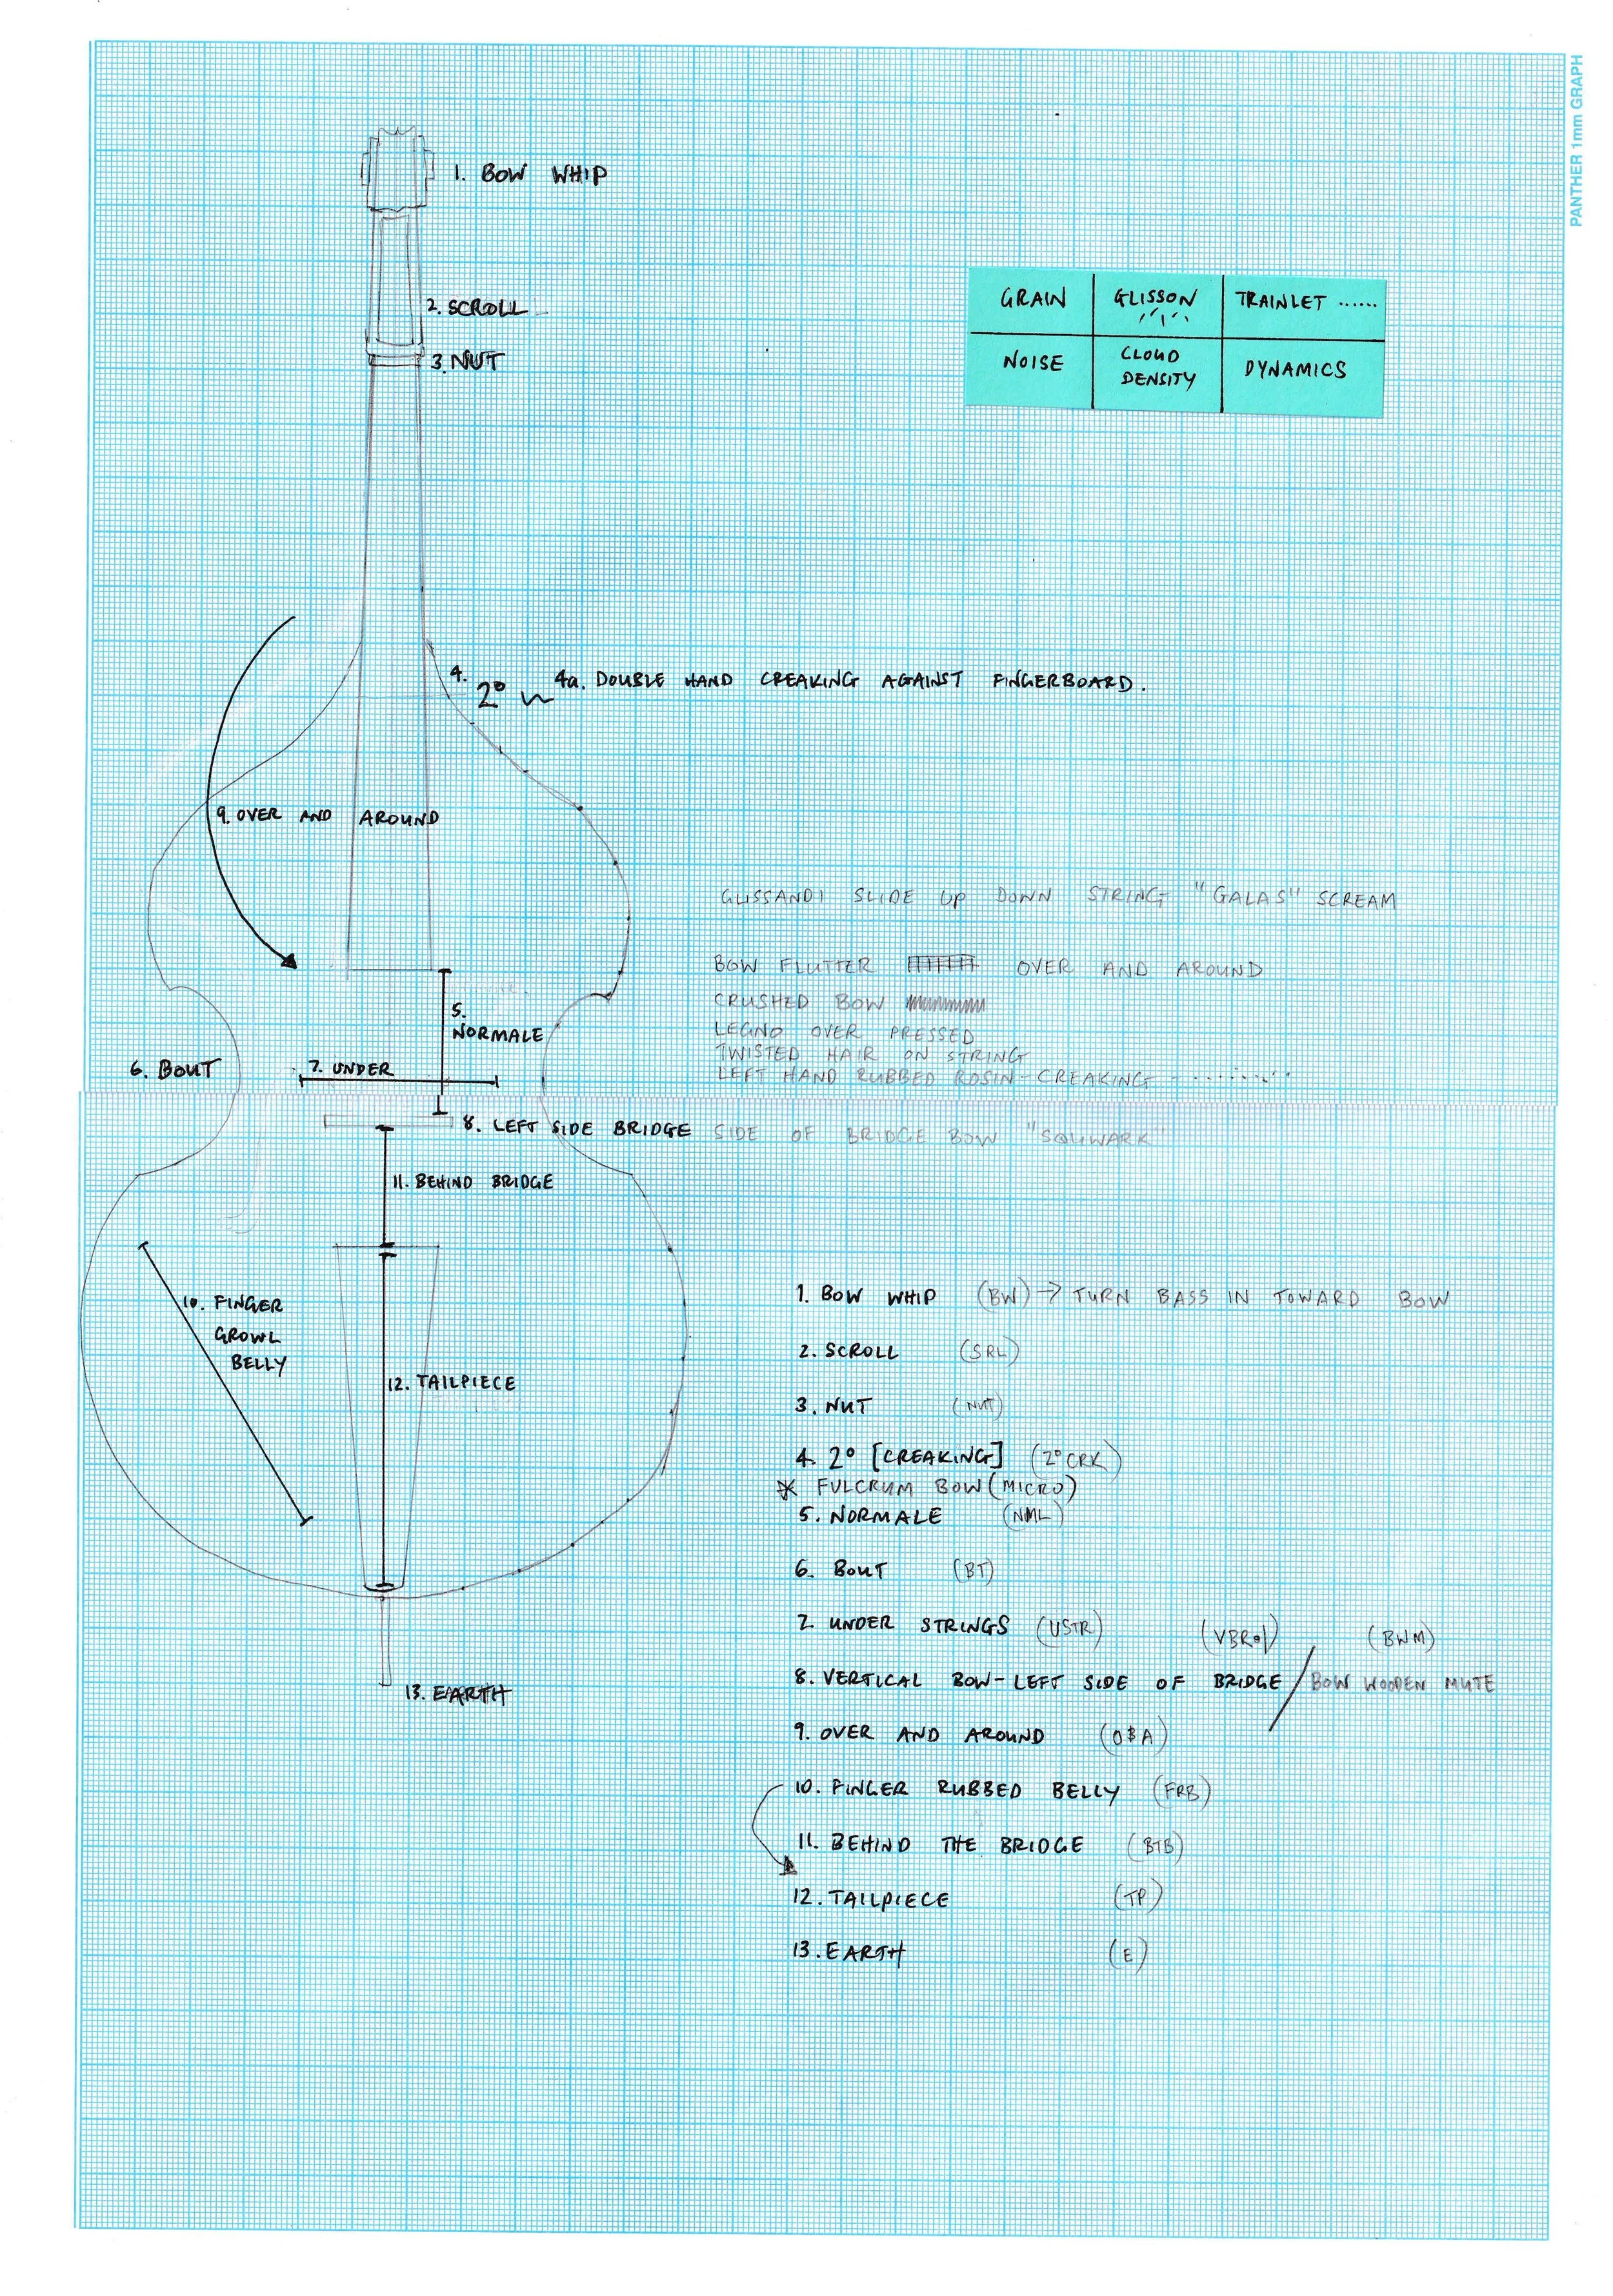 PANTHER 1mm GRAPH
1. BOW WHIP
GRAIN
GLISSON
TRAINLET ......
NOISE
CLOUD
DENSITY
DYNAMICS
2. SCROLL
3. NUT
4.
2°
4a. DOUBLE HAND CREAKING AGAINST FINGERBOARD.
9. OVER AND AROUND
GLISSANDI SLIDE UP DOWN STRING "GALAS" SCREAM
BOW FLUTTER OVER AND AROUND
CRUSHED BOW
LEGNO OVER PRESSED
TWISTED HAIR ON STRING
LEFT HAND RUBBED ROSIN-CREAKING
5.
NORMALE
6. BOUT
7. UNDER
8. LEFT SIDE BRIDGE SIDE OF BRIDGE BOW "SQUWARK"
11. BEHIND BRIDGE
10. FINGER
GROWL
BELLY
12. TAILPIECE
13. EARTH
1. BOW WHIP (BW) → TURN BASS IN TOWARD BOW
2. SCROLL (SRL)
3. NUT (NUT)
4. 2° [CREAKING] (2° CRK)
* FULCRUM BOW (MICRO)
5. NORMALE (NML)
6. BOUT (BT)
7. UNDER STRINGS (USTR)
(BWM)
8. VERTICAL BOW-LEFT SIDE OF BRIDGE / BOW WOODEN MUTE
9. OVER AND AROUND (O&A)
10. FINGER RUBBED BELLY (FRB)
11. BEHIND THE BRIDGE (BTB)
12. TAILPIECE (TP)
13. EARTH (E)